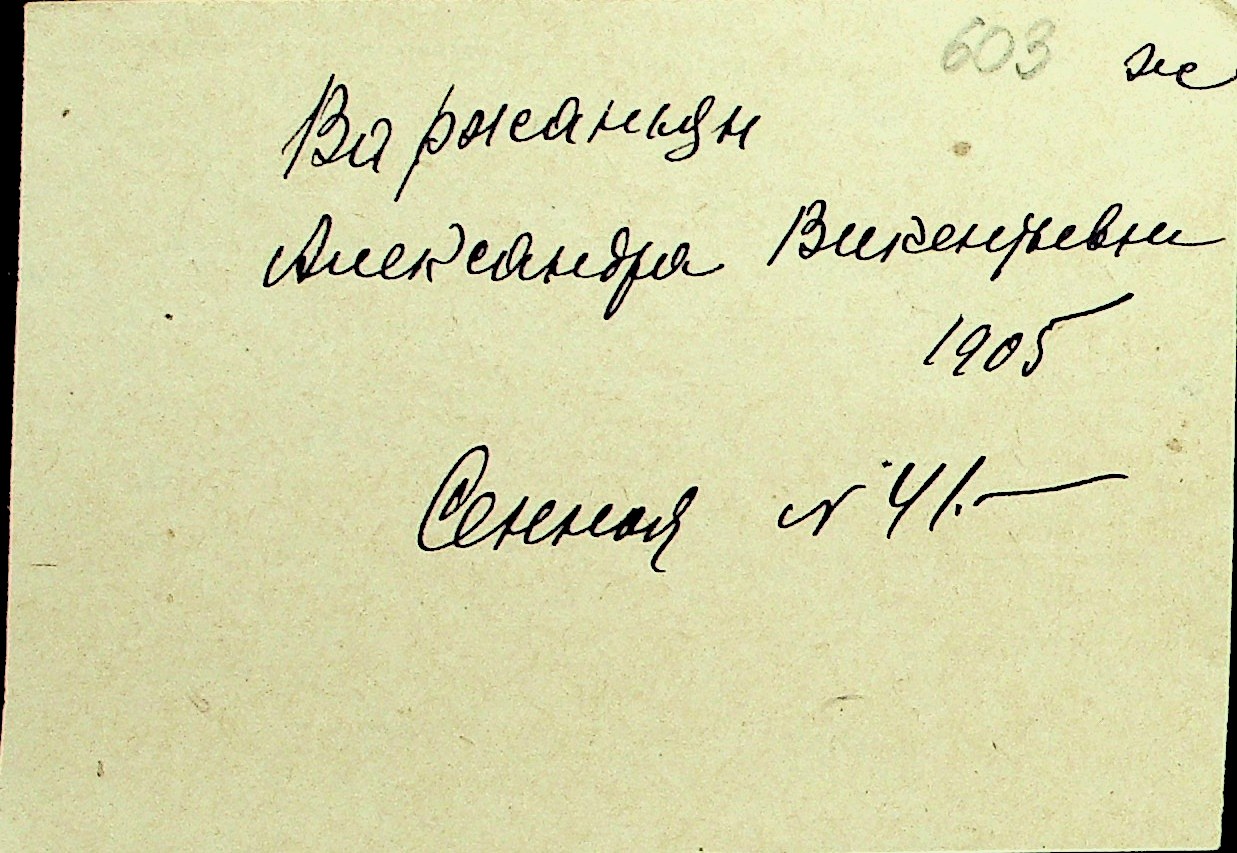 603 ж
Варжаньян
Александра Викентьевна
1905
Сенная N 41.—